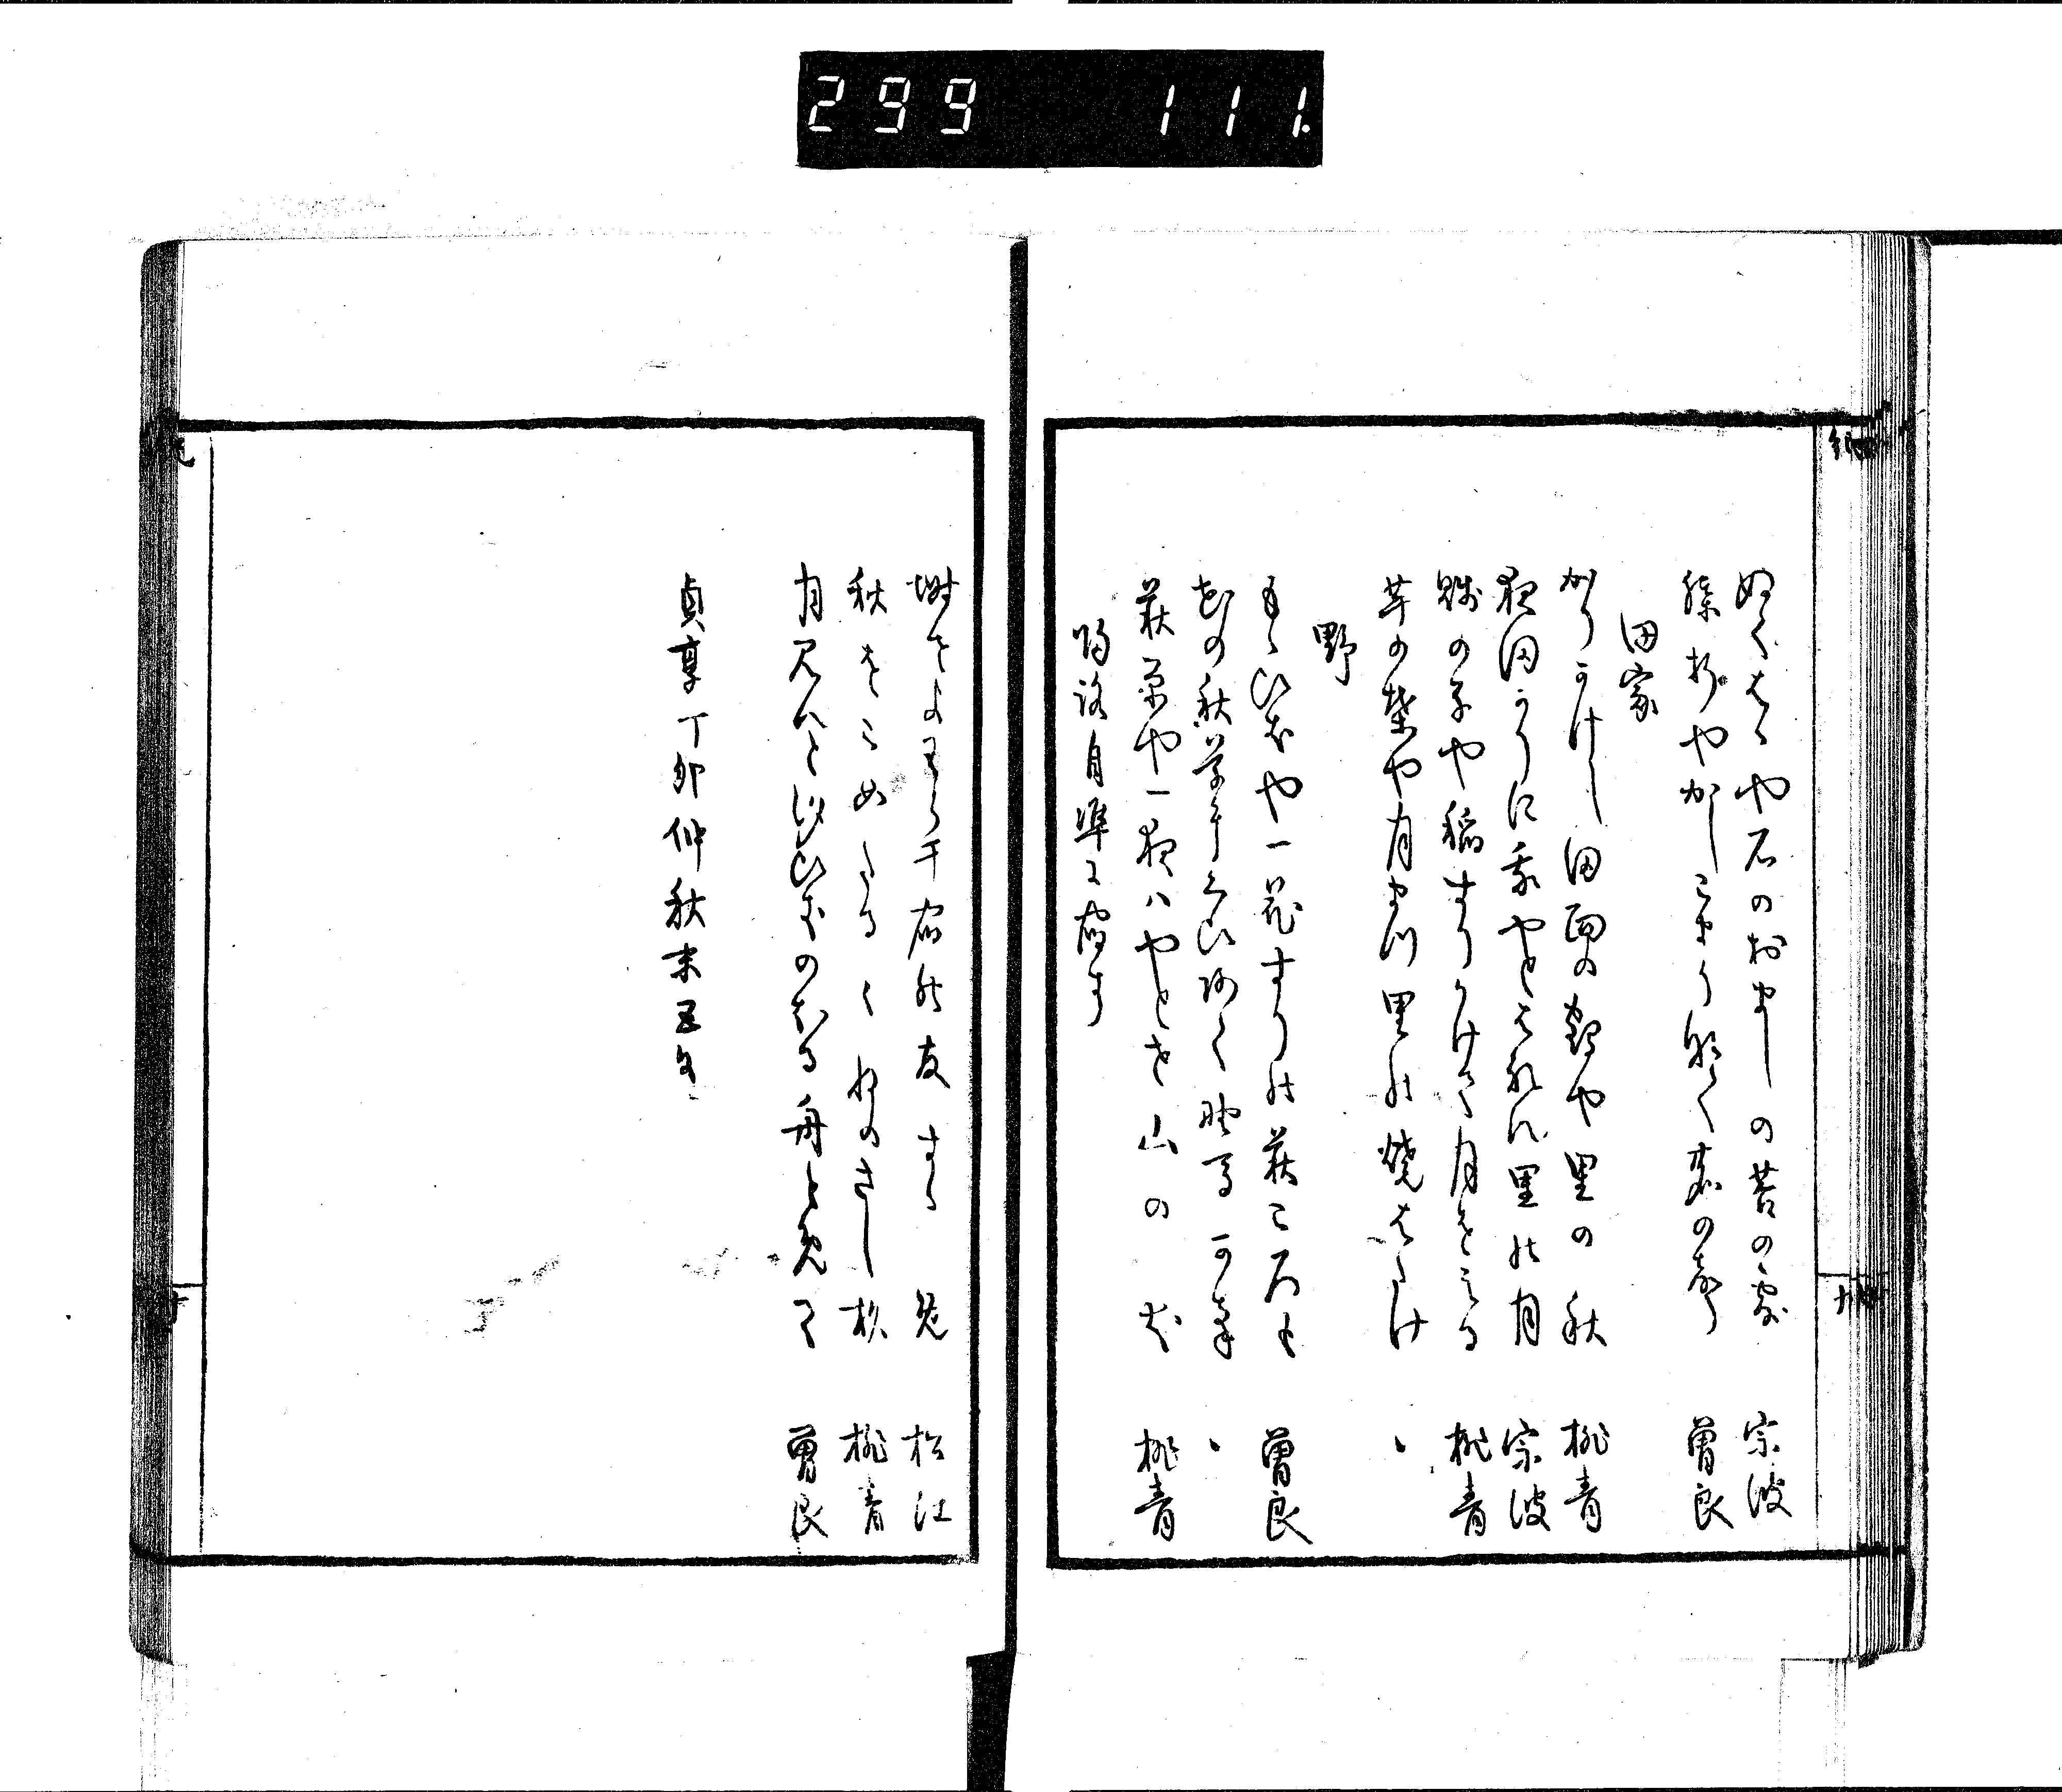 299 111.
ぬくはゝや石のおましの苔の露 宗波
膝折やかしこまり鳴く鹿の声 曽良
田家
かりかけし田面の鶴や里の秋 桃青
夜田かりに我やとはれん里の月 宗波
賤の子や稲すりかけて月をみる 桃青
芋の葉や月まつ里の焼はたけ 、
野
もゝひきや一花すりの萩ころも 曽良
花の秋草に喰あく野馬かな 、
萩原や一夜はやとせ山の犬 桃青
帰路自準に宿す
塒せよわら干宿の友すゝめ 松江
秋をこめたるくねのさし杉 桃青
月見んと汐ひきのほる舟とめて 曽良
貞享丁卯仲秋末五日